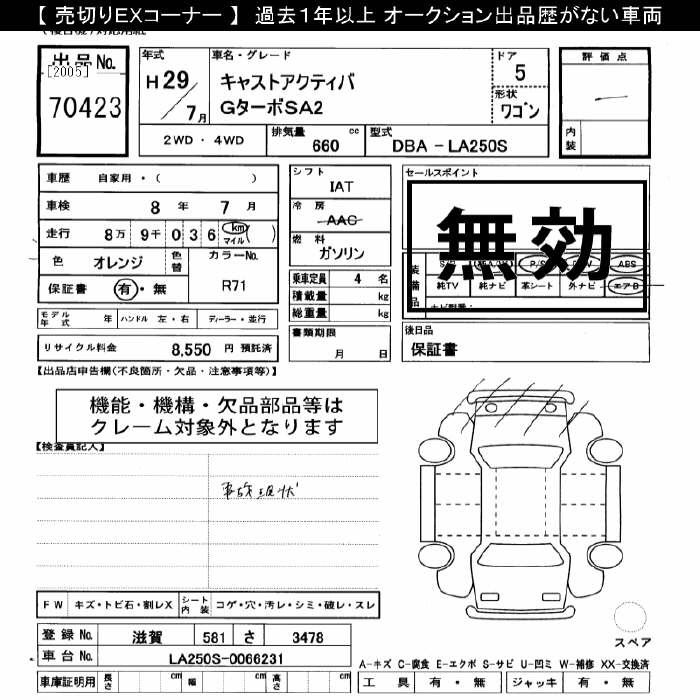 【 売切りEXコーナー 】 過去１年以上 オークション出品歴がない車両
出品No.
[2005]
70423
年式 車名・グレード ドア 評価点
H 29 / 7 月 キャストアクティバ 5
GターボSA2 形状 ワゴン
内装
2WD ・ 4WD 排気量 660 cc 型式 DBA - LA250S
車歴 自家用・( )
車検 8 年 7 月
走行 8 万 9 千 0 3 6 km マイル ( )
色 オレンジ 色替 カラーNo. R71
保証書 有 ・ 無
シフト IAT
冷房 AAC
燃料 ガソリン
乗車定員 4 名
積載量 kg
総重量 kg
セールスポイント
無効
装備品 P/S P/W ABS
純TV 純ナビ 革シート 外ナビ エアB
モデル年式 年 ハンドル 左・右 ディーラー・並行
書類期限 月 日
後日品
保証書
リサイクル料金 8,550 円 預託済
【出品店申告欄(不良箇所・欠品・注意事項等)】
機能・機構・欠品部品等は
クレーム対象外となります
【検査員記入】
事故現状
FW キズ・トビ石・割レX シート内装 コゲ・穴・汚レ・シミ・破レ・スレ
登録No. 滋賀 581 さ 3478
車台No. LA250S-0066231
車庫証明用 長さ cm 幅 cm 高さ cm
スペア
A-キズ C-腐食 E-エクボ S-サビ U-凹ミ W-補修 XX-交換済
工具 有 ・ 無 ジャッキ 有 ・ 無